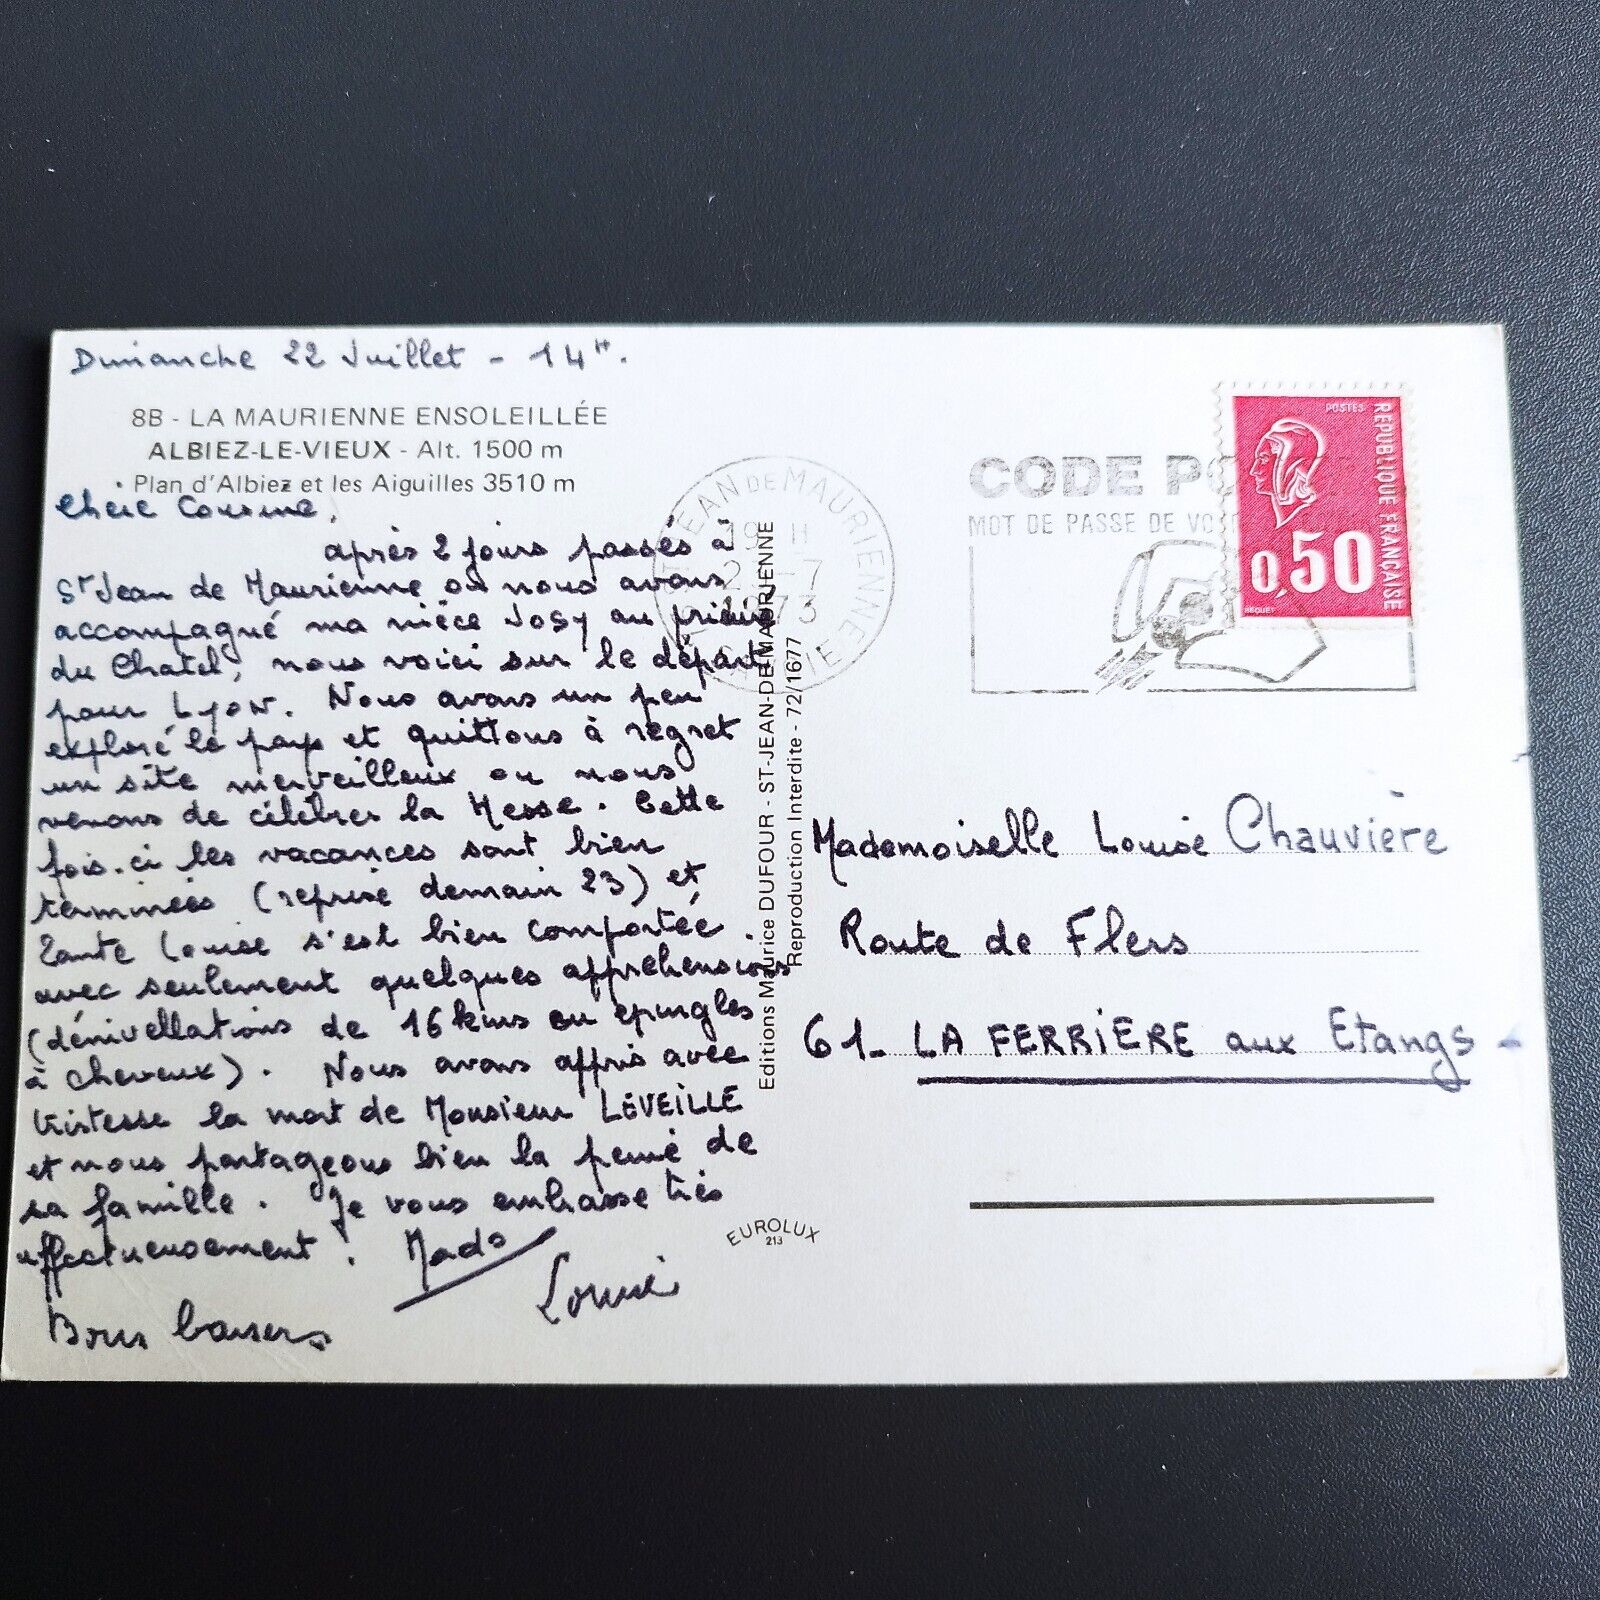 Dimanche 22 Juillet - 14H.
8B - LA MAURIENNE ENSOLEILLÉE
ALBIEZ-LE-VIEUX - Alt. 1500 m
Plan d'Albiez et les Aiguilles 3510 m
Chère Cousine,
après 2 jours passés à
St Jean de Maurienne où nous avons
accompagné ma nièce Josy au prieuré
du Chatel, nous voici sur le départ
pour Lyon. Nous avons un peu
exploré le pays et quittons à regret
un site merveilleux ou nous
venons de célébrer la Messe. Cette
fois-ci les vacances sont bien
terminées (reprise demain 23) et
Tante Louise s'est bien comportée.
avec seulement quelques appréhensions
(dénivellations de 16 kms en epingles
à cheveux). Nous avons appris avec
tristesse la mort de Monsieur LÉVEILLÉ
et nous partageons bien la peine de
sa famille. Je vous embrasse très
affectueusement. Mado
Louise
Bons baisers
Editions Maurice DUFOUR - ST-JEAN-DE-MAURIENNE
Reproduction Interdite - 72/1677
EUROLUX
213
ST JEAN DE MAURIENNE
19 H
-7
1973
SAVOIE
CODE
MOT DE PASSE DE
POSTES
REPUBLIQUE FRANÇAISE
0,50
BEQUET
Mademoiselle Louise Chauvière
Route de Flers
61- LA FERRIÈRE aux Etangs